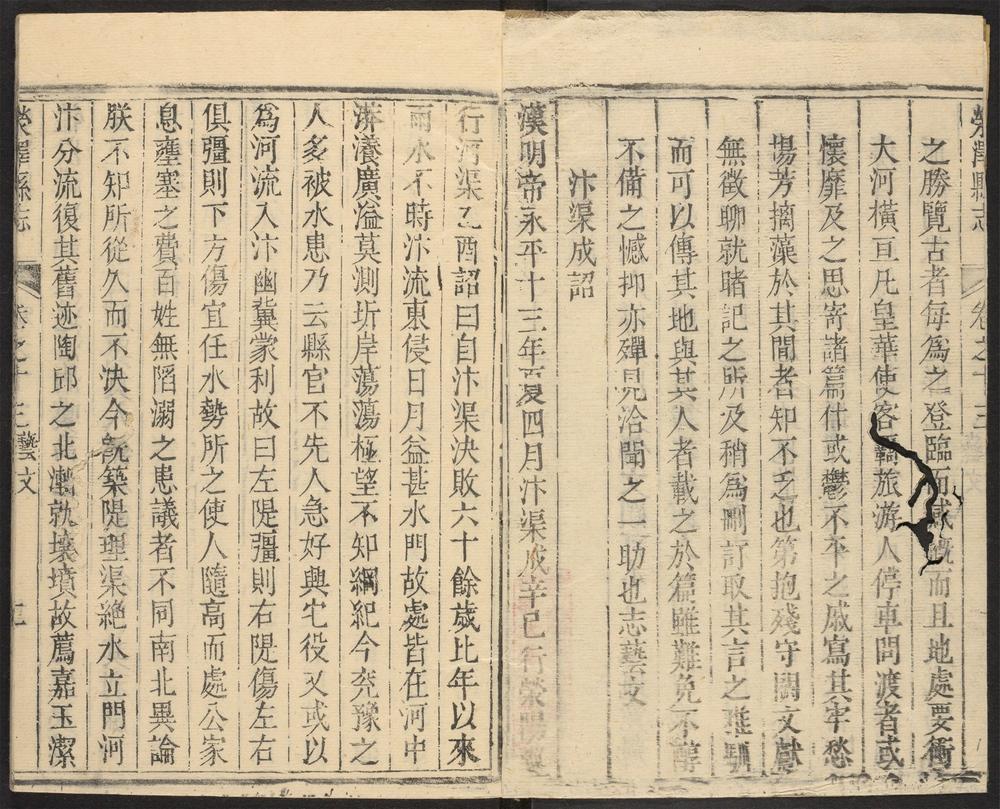 滎澤縣志 卷之十三
之勝覽古者每為之登臨而感慨而且地處要衝
大河橫亘凡皇華使客覊旅游人停車問渡者或
懷靡及之思寄諸篇什或鬱不平之感寫其牢愁
揚芳摘藻於其間者知不乏也第抱殘守闕文獻
無徵聊就睹記之所及稍為刪訂取其言之雅馴
而可以傳其地與其人者載之於篇雖難免不
不備之憾抑亦殫見洽聞之一助也志藝文
汴渠成詔
漢明帝永平十三年夏四月汴渠成辛巳行滎陽巡
行河渠乙酉詔曰自汴渠決敗六十餘歲比年以來
雨水不時汴流東侵日月益甚水門故處皆在河中
漭瀁廣溢莫測圻岸蕩蕩極望不知綱紀今兗豫之
人多被水患乃云縣官不先人急好興它役又或以
為河流入汴幽冀蒙利故曰左隄彊則右隄傷左右
俱彊則下方傷宜任水勢所之使人隨高而處公家
息壅塞之費百姓無陷溺之患議者不同南北異論
朕不知所從久而不決今既築隄理渠絶水立門河
汴分流復其舊迹陶邱之北漸就壤墳故薦嘉玉潔
滎澤縣志 卷之十三 藝文